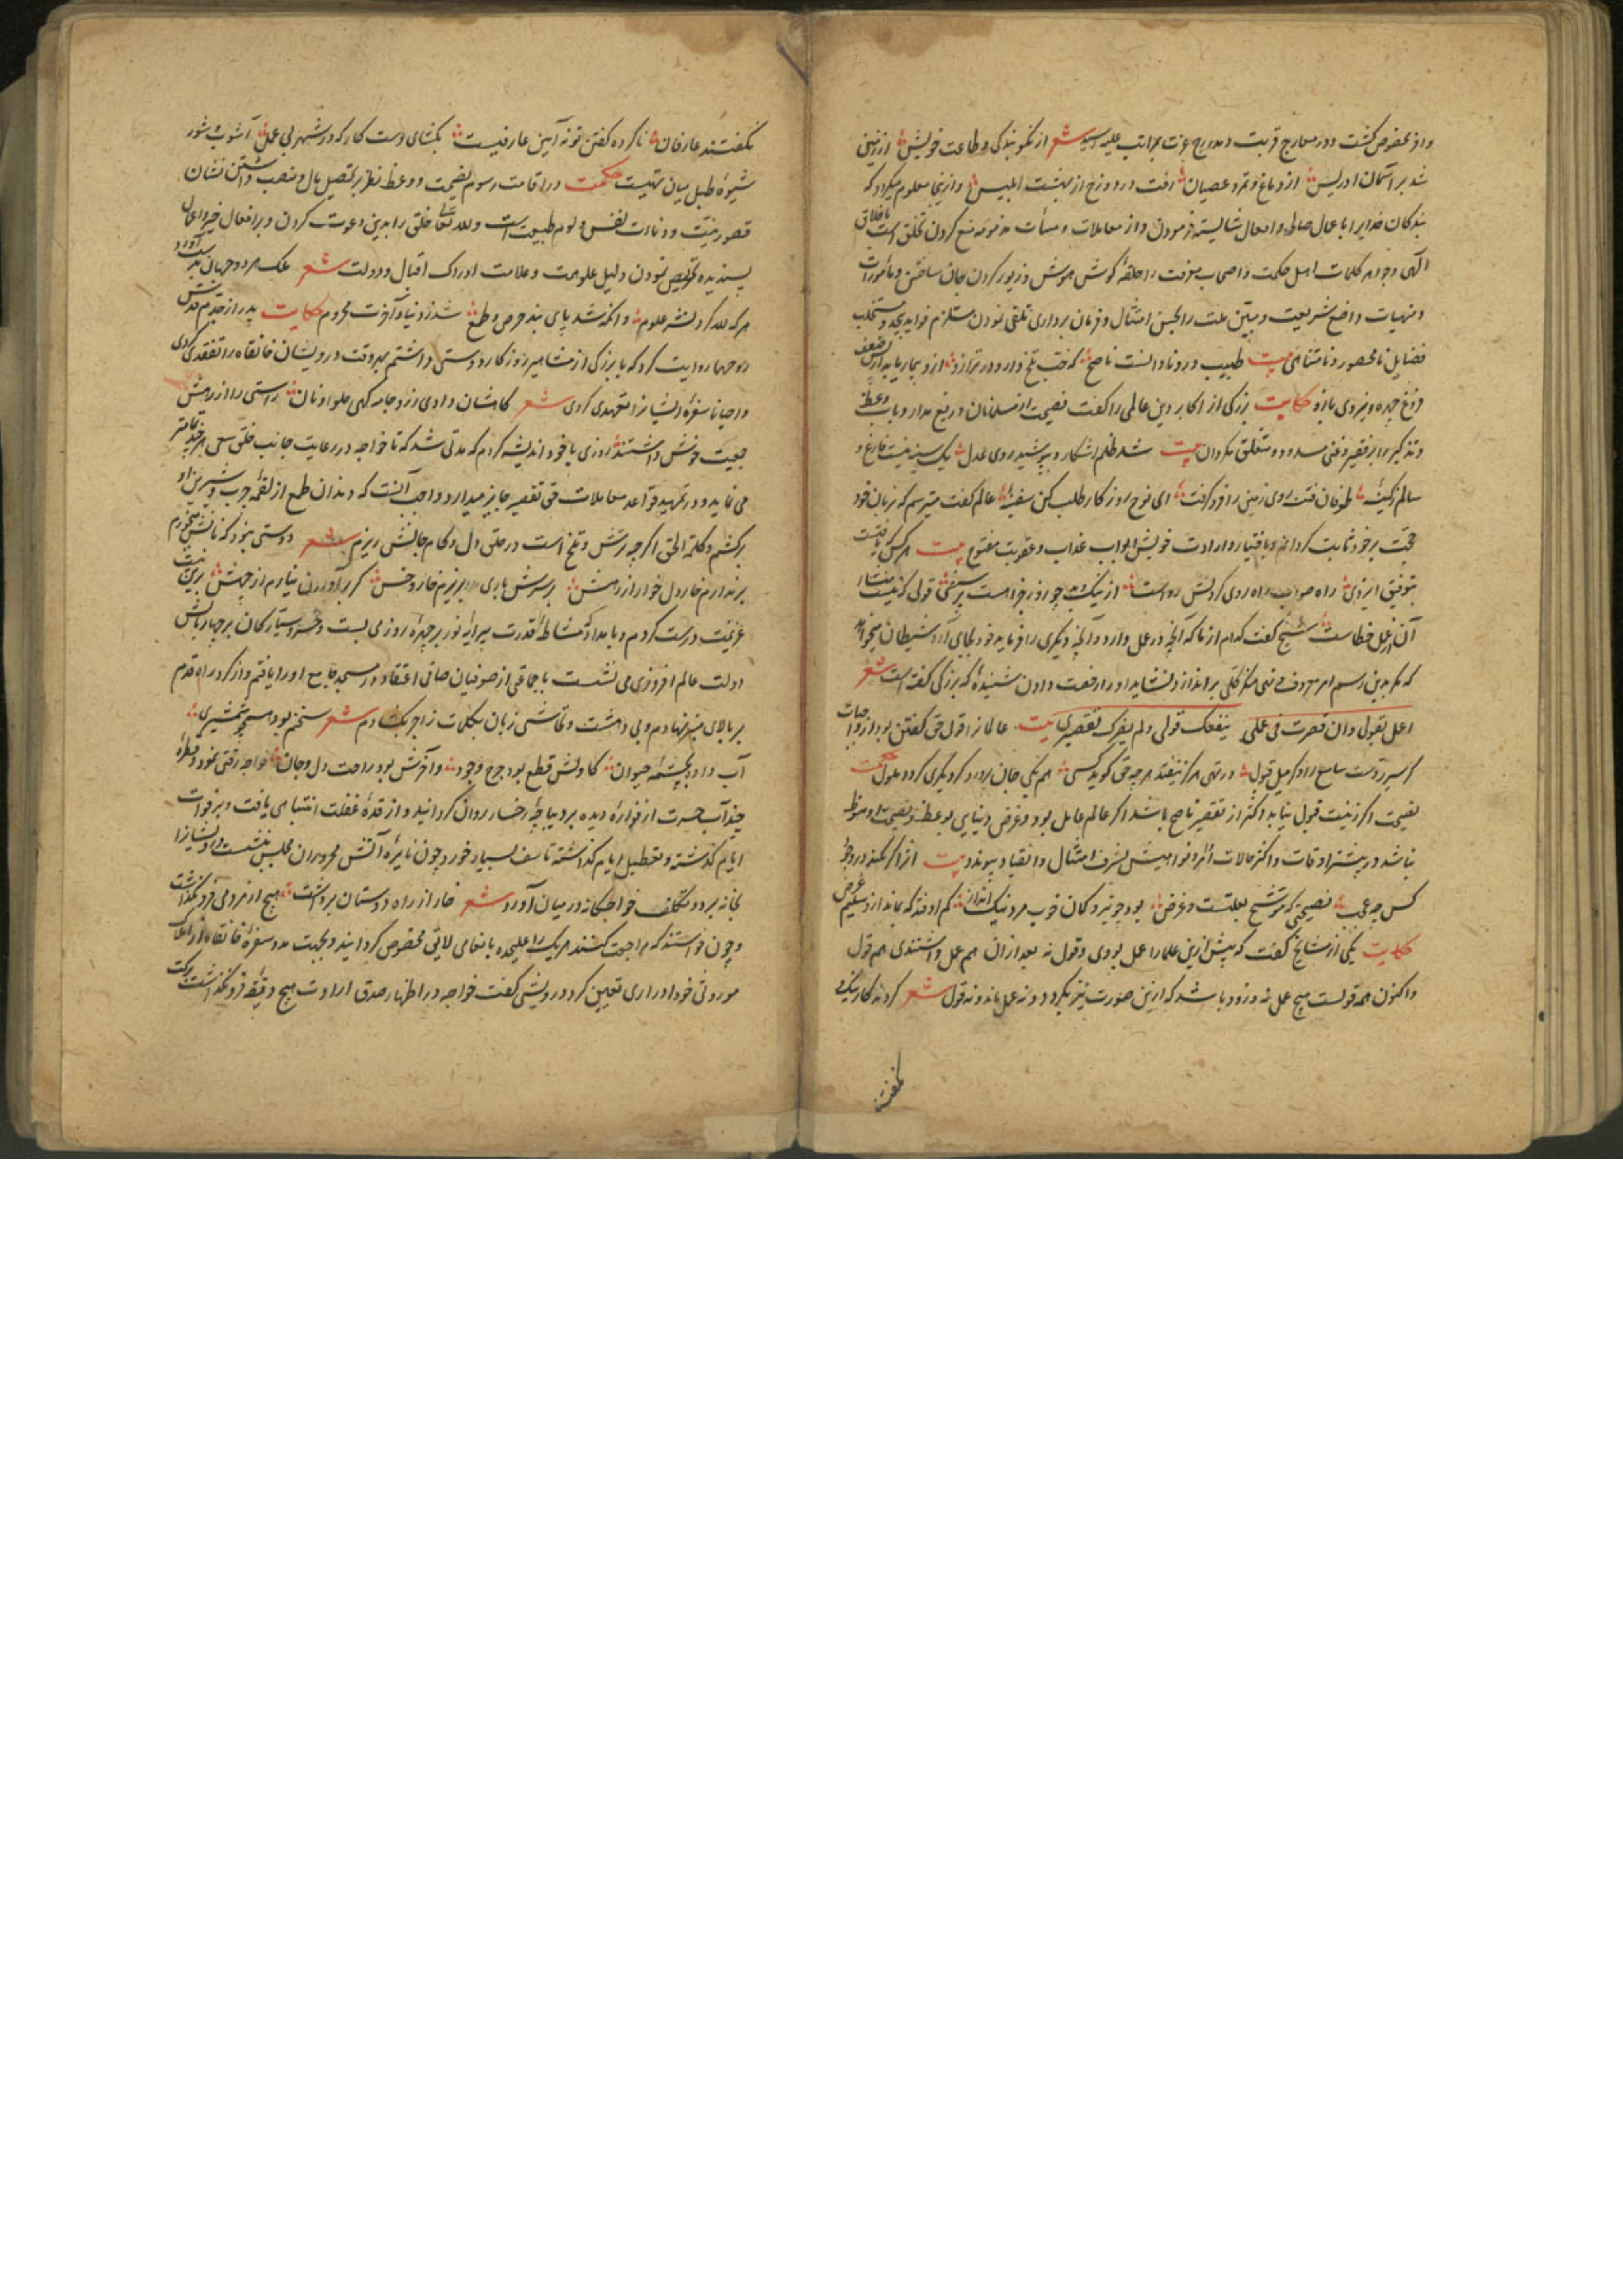 شعر از نکو بندگی و طاعت خویش از زمین
شد بر آسمان ادریس از دماغ و تمرد عصیان افت در دوزخ از بهشت ابلیس و ازینجا معلوم میکردد که
بندکان خدایرا باعمال صالحه و افعال شایسته فرمودن و از معاملات و مذمومه منع کردن تخلق است باخلاق
الهی و جواهر کلمات اهل حکمت و اصحاب معرفت را حلقهٔ کوش هوش و زیور کردن جان ساختن و مأمورات
و منهیات واضع شریعت و مبین ملت را بحسن امتثال و فرمان برداری تلقی نمودن مستلزم فواید
فضایل نامحصور و نامتناهی بیت طبیب درد نادانست ناصح که حب تلخ دارد در ترازو از و بیمار یابد
فروغ چهره و نیروی بازو حکایت بزرکی از اکابر دین عالمی را کفت نصیحت از مسلمانان دریغ مدار و باب وعظ
و تذکیر بر فقیر و غنی مسدود و متعلق مکردان بیت شد ظلم آشکار و بپوشید روی عدل یک سینه نیست فارغ و
سالم ز کینهٔ طوفان فتنه روی زمین را فرو کرفت ای نوح روزکار طلب کن سفینهٔ عالم کفت میترسم که زبان خود
حجت بر خود ثابت کردانم و باختیار و ارادت خویش ابواب عذاب و عقوبت مفتوح بیت هر کس که یافتست
بتوفیق ایزدی راه صواب راه روی کردنش رواست از نیک و بد چو روز جزا هست پرسشی قولی که نیست
آن عمل خطاست شیخ کفت کدام از ما که آنچه در عمل دارد و آنچه دیکری را فرماید خود بجای آرد شیطان میخواهد
که بدین رسم امر معروف و نهی منکر کلی براندازد نشاید او را رخصت دادن شنیدهٔ که بزرکی کفته است شعر
اعمل بقولی وان قصرت فی عملی ینفعک قولی ولم یضررک تقصیری بیت عالمانرا قول حق کفتن بود از واجبات
هم یکی جان پرورد کر دیکری کردد ملول حکمت
نصیحت اکر زینت قبول نیابد اکثر از تقصیر ناصح باشد اکر عالم عامل بود و غرض دنیایی بوعظ و نصیحت او
نباشد در بیشتر اوقات و اکثر حالات اوامر و نواهیش بشرف امتثال و انقیاد پیوندد بیت اثر ار نکند در وجود
کس چه عجب نصیحتی که موشح بعلتست و غرض بود چو تیر و کمان خوب مرد نیک انداز کم اوفتد که نماند از و سلیم غرض
حکایت یکی از مشایخ کفت که پیش ازین علما را عمل بودی و قول نه بعد از ان هم عمل داشتندی هم قول
و اکنون همه قولست هیچ عمل نه و زود باشد که ازین صورت نیز بکردد و نه عمل ماند و نه قول شعر کرده کار نیک
نکفتند
نکفتند عارفان ناکرده کفتن تو نه آیین عارفیست بکشای دست کار که در شهر بی عمل آشوب و شور
شیوهٔ طبل میان تهیست حکمت در اقامت رسوم نصیحت و وعظ نظر بر تحصیل مال و منصب داشتن نشان
قصور نیت و دناءت نفس و لوم طبیعت است و لله تعالی خلق را بدین دعوت کردن و بر افعال خیر و اعمال
پسندیده تحریص نمودن دلیل علو همت و علامت ادراک اقبال و دولت شعر ملک هر دو جهان بدست آورد
هر که لله کرد نشر علوم وانکه شد پای بند حرص و طمع شد ز دنیا و آخرت محروم حکایت پدر از جدم قدس
روحهما روایت کرد که با بزرکی از مشاهیر روزکار دوستی داشتم بهر وقت درویشان خانقاه را تفقد کردی
و احیانا سفرهٔ ایشانرا تعهدی کردی شعر کامشان دادی ز زر و جامه کهی حلوا و نان راستی را از
جمعیت خوش داشتند روزی با خود اندیشه کردم که مدتی شد که تا خواجه در رعایت جانب خلق سعی هر چه تمامتر
می نماید و در تمهید قواعد معاملات حق تقصیر جایز میدارد واجب آنست که دندان طمع از لقمهٔ چرب و شیرین او
برکشم و کلمة الحق اکرچه ترش و تلخ است در حلق دل و کام جانش ریزم شعر دوستی نبود که نانش میخورم
بر ندارم خار دل خوار از رهش بر سرش باری بریزم خار و خس کر بر آوردن نیارم از چهش برین نیت
عزیمت درست کردم و بامداد که مشاطهٔ قدرت پیرایهٔ نور بر چهرهٔ روز می بست و خسرو سیارکان بر چهار بالش
دولت عالم افروزی می نشست با جماعتی از صوفیان صافی اعتقاد در مسجد جامع او را یافتم و از کرد راه قدم
بر بالای منبر نهادم و بی دهشت و تحاشی زبان بکلمات زاجر بکشادم شعر سخنم بود همچو شمشیری
آب داده بچشمه حیوان کاولش قطع بود و جرح وجود و آخرش بود راحت دل و جان خواجه رقتی نمود و قطرهٔ
چند آب حسرت از فوارهٔ دیده بر دیباچهٔ رخسار روان کردانید و از رقدهٔ غفلت انتباهی یافت و بر فوات
ایام کذشته و تعطیل ایام کذاشته تاسف بسیار خورد چون نایرهٔ آتش محروران مجلس بنشست درویشانرا
بخانه برد و تکلف خواجکانه در میان آورد شعر خار از راه دوستان برداشت هیچ از مردمی فرو نکذاشت
و چون خواستند که مراجعت کنند هر یک را علیحده بانعامی لایق مخصوص کردانید و بجهت مدد سفرهٔ خانقاه از املاک
موروثی خود ادراری تعیین کرد درویشی کفت خواجه در اظهار صدق ارادت هیچ دقیقه فرو نکذاشت برکت